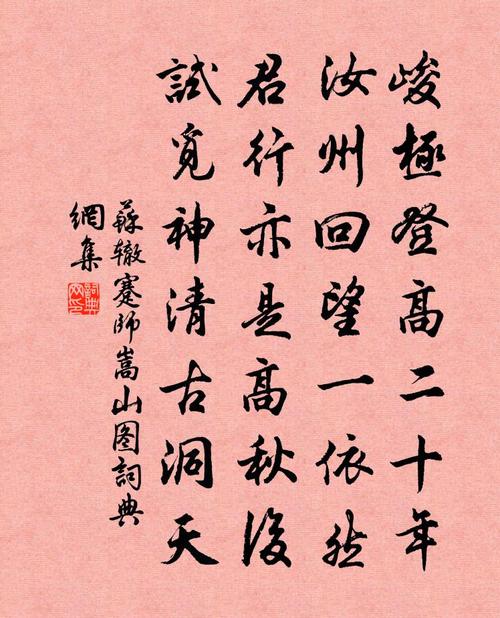 峻極登高二十年
汝州回望一依然
君行亦是高秋後
試覓神清古洞天
蘇辙蹇師嵩山图詞典
網集